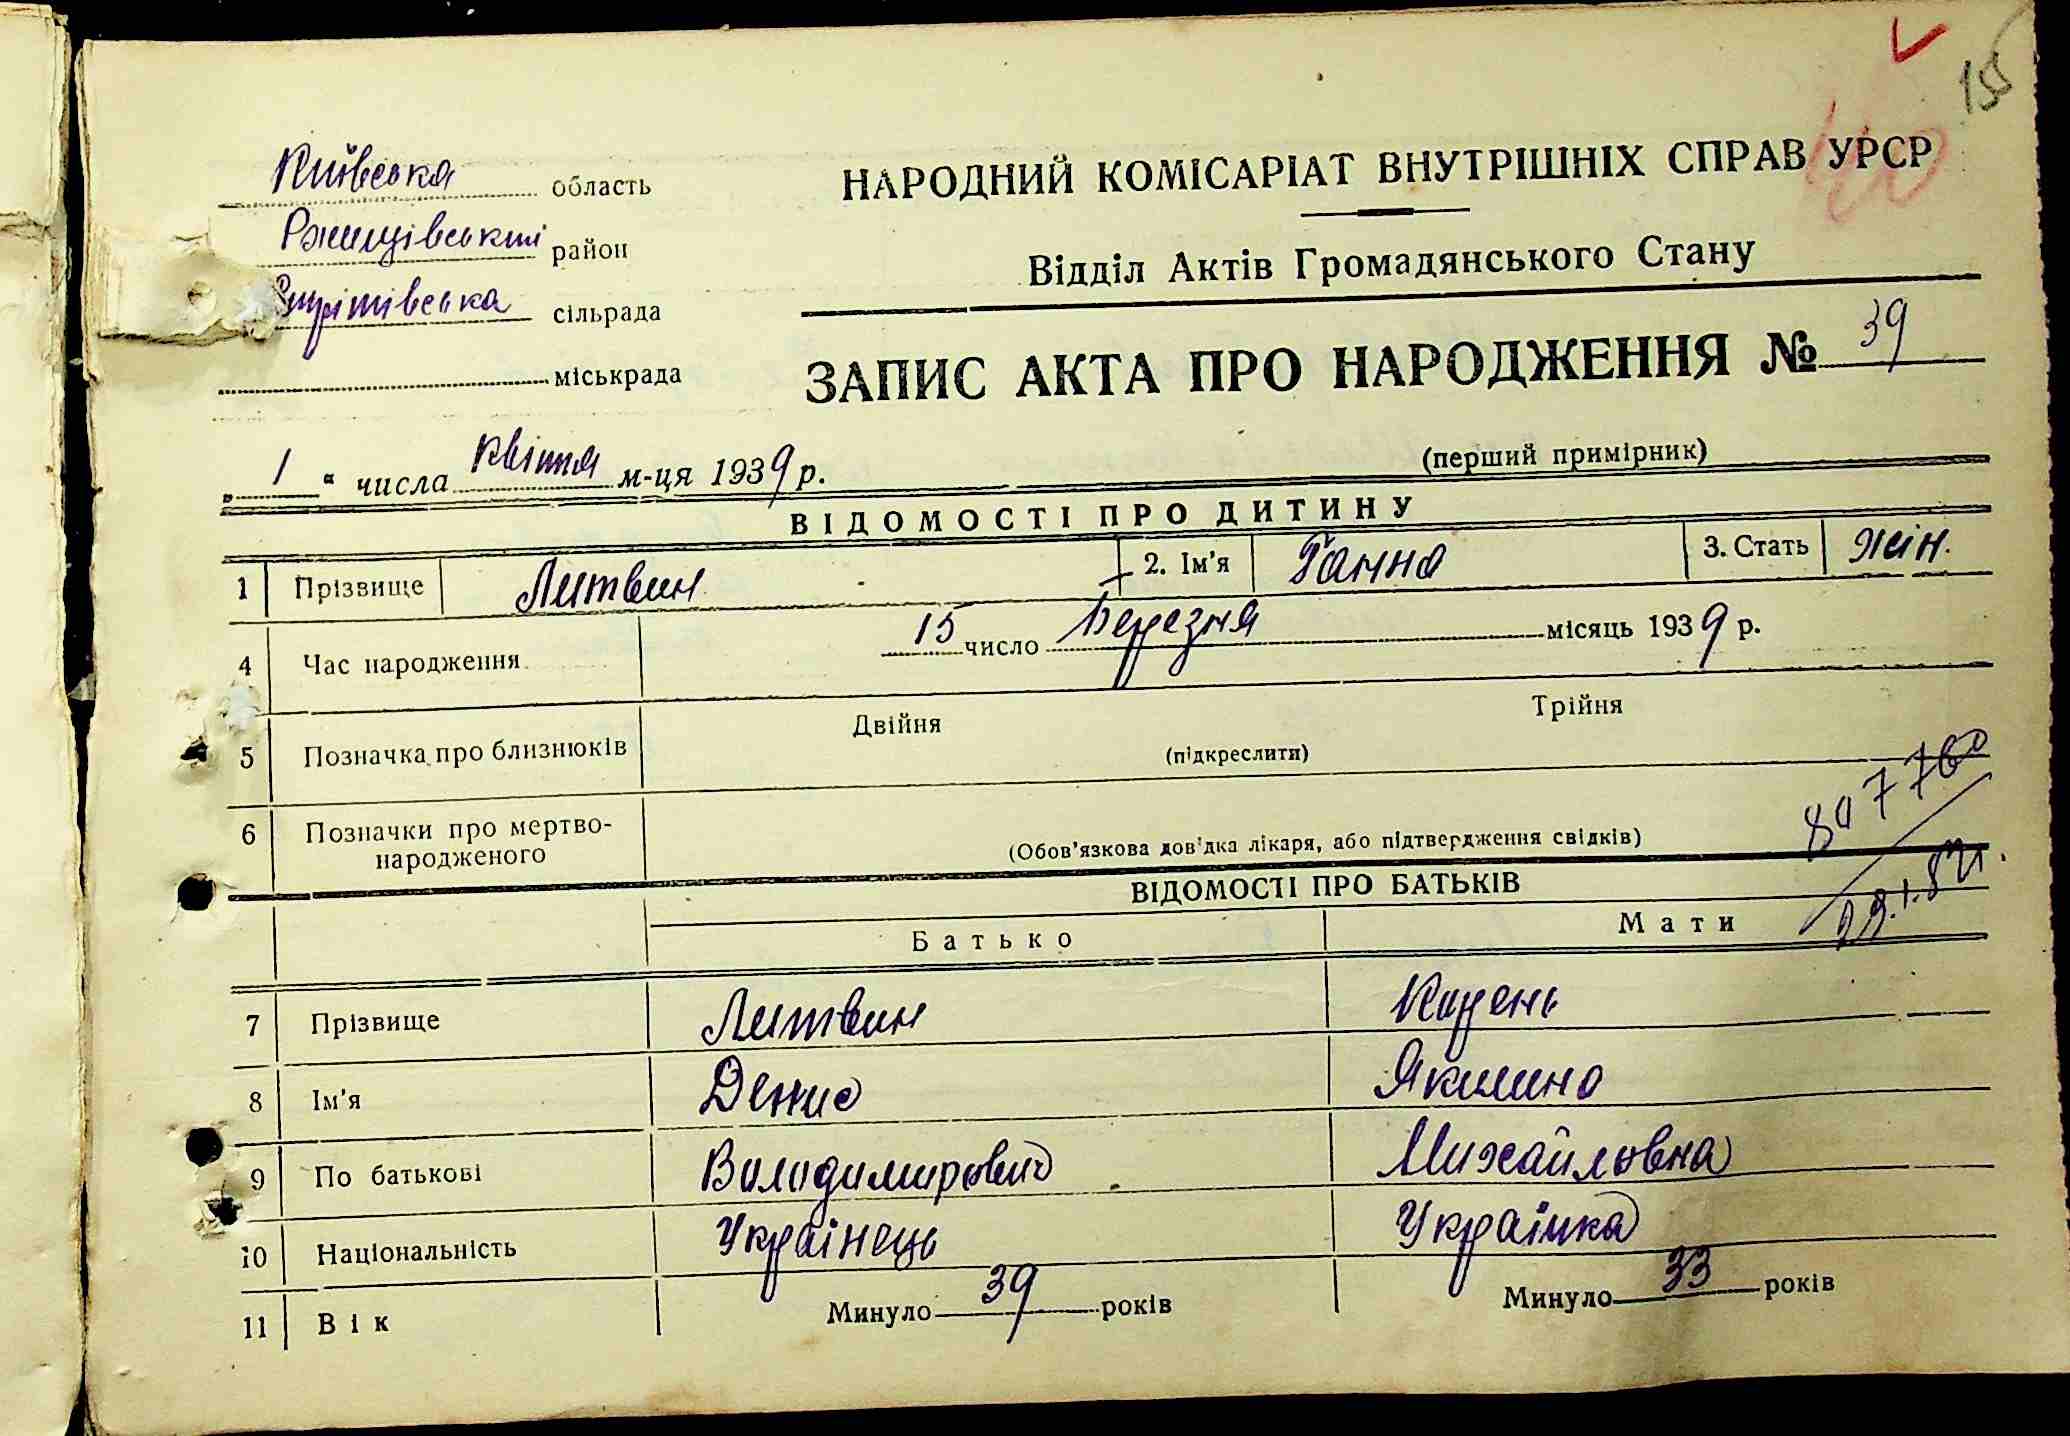 155
Київська область
Ржищівський район
сільрада
міськрада
НАРОДНИЙ КОМІСАРІАТ ВНУТРІШНІХ СПРАВ УРСР
Відділ Актів Громадянського Стану
ЗАПИС АКТА ПРО НАРОДЖЕННЯ № 39
„ 1 “ числа квітня м-ця 1939 р.
(перший примірник)
ВІДОМОСТІ ПРО ДИТИНУ
1 Прізвище Литвин 2. Ім'я Ганна 3. Стать жін.
4 Час народження 15 число Березня місяць 1939 р.
5 Позначка про близнюків Двійня Трійня
(підкреслити)
6 Позначки про мертво-
народженого
(Обов'язкова довідка лікаря, або підтвердження свідків)
ВІДОМОСТІ ПРО БАТЬКІВ
Батько Мати
7 Прізвище Литвин Корень
8 Ім'я Денис Якилина
9 По батькові Володимирович Михайловна
10 Національність Українець Українка
11 Вік Минуло 39 років Минуло 33 років